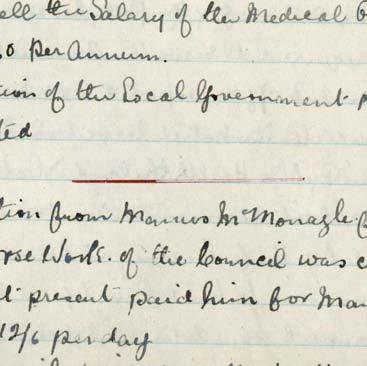 ell the Salary of the Medical O
0 per Annum.
tion of the Local Government
ted
tion from Manus McMonagle
orse Work. of the Council was c
t present paid him for Man
12/6 per day